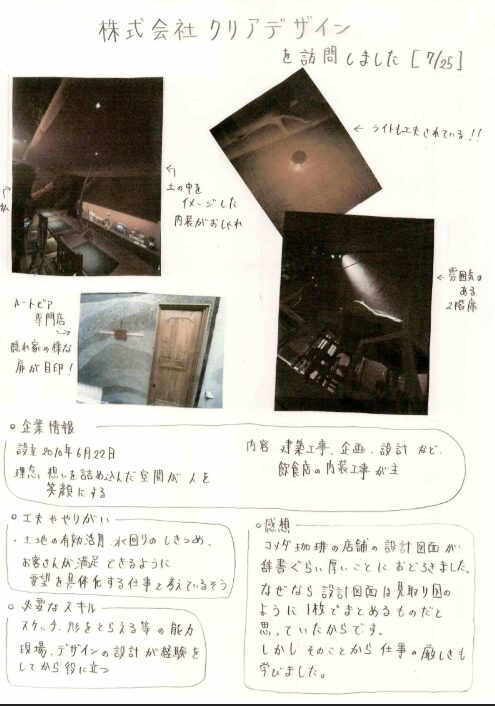 株式会社クリアデザイン
を訪問しました [7/25]
← ライトも工夫されている!!
土の中を
イメージした
内装がおしゃれ
私
← 雰囲気の
ある
2階席
ルートビア
専門店
隠れ家の様な
扉が目印!
○ 企業情報
設立 2010年6月22日
理念 想いを詰め込んだ空間が人を
笑顔にする
内容 建築工事、企画・設計 など、
飲食店の内装工事が主
○ 工夫ややりがい
・土地の有効活用 水回りのしきつめ、
お客さんが満足できるように
要望を具体化する仕事と考えているそう
○ 必要なスキル
スケッチ、形をとらえる等の能力
現場、デザインの設計が経験を
してから役に立つ
○ 感想
コメダ珈琲の店舗の設計図面が
辞書ぐらい厚いことにおどろきました。
なぜなら設計図面は見取り図の
ように1枚でまとめるものだと
思っていたからです。
しかしそのことから仕事の厳しさも
学びました。